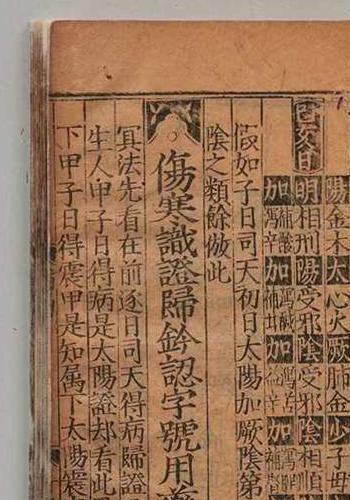 陽金木太心火厥肺金少子母
巳亥日
明相刑陽受邪陰受邪陰相順
加 加 加 加
假如子日司天初日太陽加厥陰第
陰之類餘倣此
傷寒識證歸鈐認字號用
冥法先看在前逐日司天得病歸證
生人甲子日得病是太陽證却看此
下甲子日得震甲是知属下太陽震